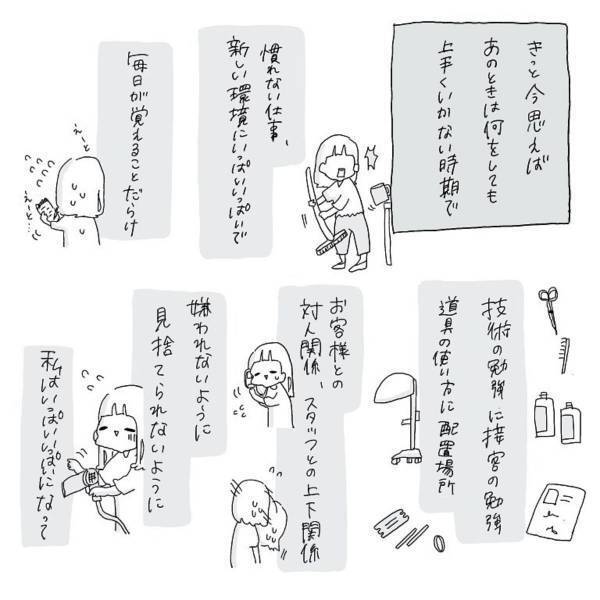 きっと今思えば
あのときは何をしても
上手くいかない時期で
慣れない仕事、
新しい環境にいっぱいいっぱいで
毎日が覚えることだらけ
えーと
えーと…
技術の勉強に接客の勉強
道具の使い方に配置場所
お客様との
対人関係、スタッフとの上下関係
嫌われないように
見捨てられないように
私はいっぱいいっぱいになって